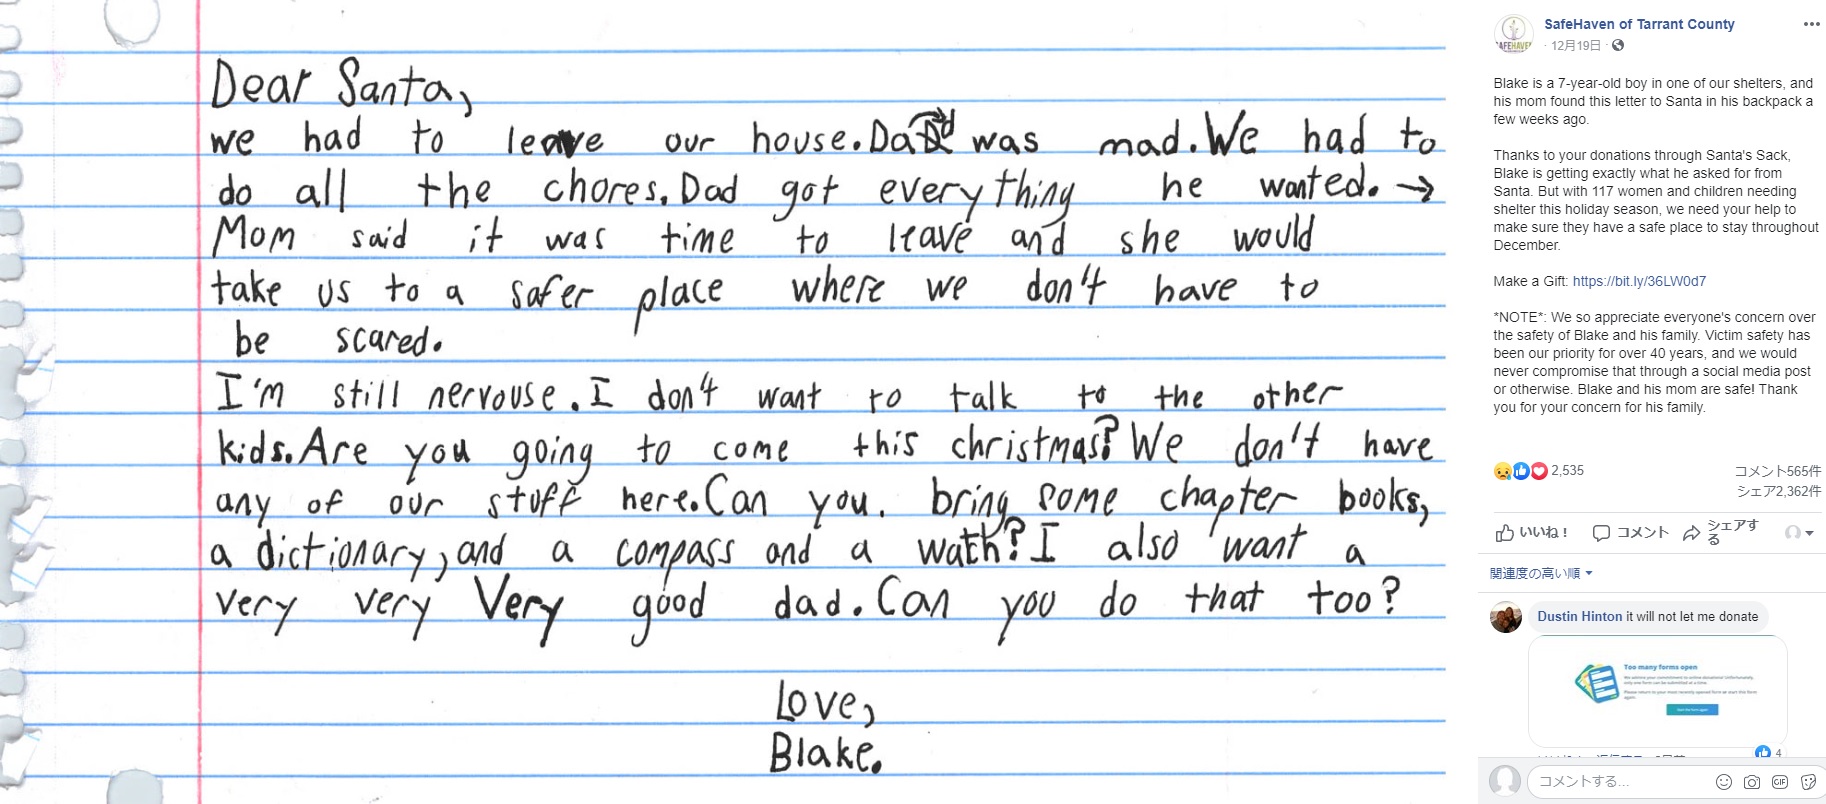 Dear Santa,
we had to leave our house. Dad was mad. We had to
do all the chores. Dad got everything he wanted. →
Mom said it was time to leave and she would
take us to a safer place where we don't have to
be scared.
I'm still nervouse. I don't want to talk to the other
kids. Are you going to come this christmas? We don't have
any of our stuff here. Can you. bring some chapter books,
a dictionary, and a compass and a wath? I also want a
very very very good dad. Can you do that too?
Love,
Blake.
SafeHaven of Tarrant County
12月19日
Blake is a 7-year-old boy in one of our shelters, and
his mom found this letter to Santa in his backpack a
few weeks ago.
Thanks to your donations through Santa's Sack,
Blake is getting exactly what he asked for from
Santa. But with 117 women and children needing
shelter this holiday season, we need your help to
make sure they have a safe place to stay throughout
December.
Make a Gift: https://bit.ly/36LW0d7
*NOTE*: We so appreciate everyone's concern over
the safety of Blake and his family. Victim safety has
been our priority for over 40 years, and we would
never compromise that through a social media post
or otherwise. Blake and his mom are safe! Thank
you for your concern for his family.
2,535
コメント565件
シェア2,362件
いいね！ コメント シェアする
関連度の高い順
Dustin Hinton it will not let me donate
Too many forms open
4
コメントする...
GIF